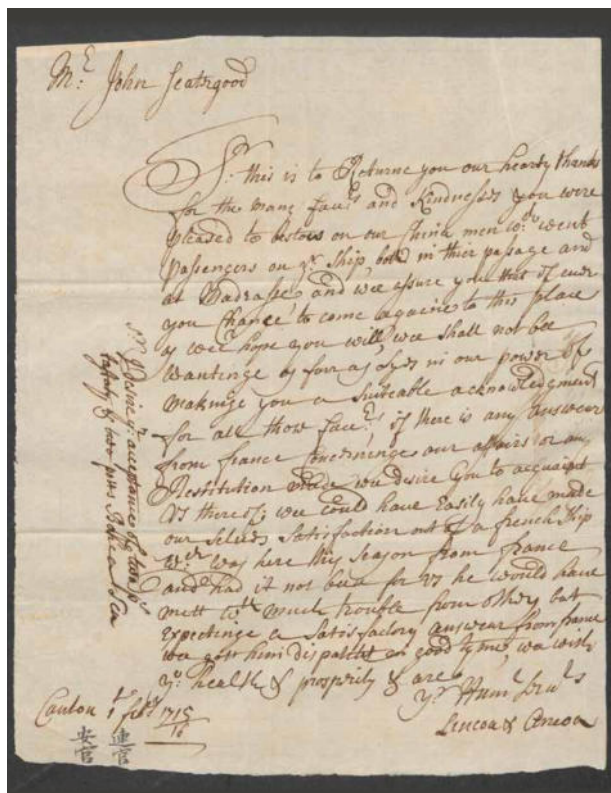 Mr: John Scattergood
Sr: this is to Returne you our hearty thanks
for the many favrs and Kindnesses you were
pleased to bestow on our China men wch: went
passengers on yr Ship, both in thier passage and
at Madrass, and wee assure you that if ever
you Chance to come againe to this place
as wee hope you will, wee shall not bee
wantinge as farr as lyes in our power of
makinge you a suiteable acknowledgment
for all those favrs, if there is any answear
from france Concerninge our affairs or any
Restitution made wee desire you to acquaint
us thereof; wee could have Easily have made
our selves Satisfaction out of a french Ship
wch was here this season from france
and had it not been for us he would have
mett wth much trouble from others but
expectinge a Satisfactory answear from france
wee gott him dispatcht in good tyme, wee wish
yo: health & prosperity & are
yr Huml Servts
Linqua & Anqua
Canton 1t febr 1715/16
Sr I desire yr acceptance of two ps
taffaty & two